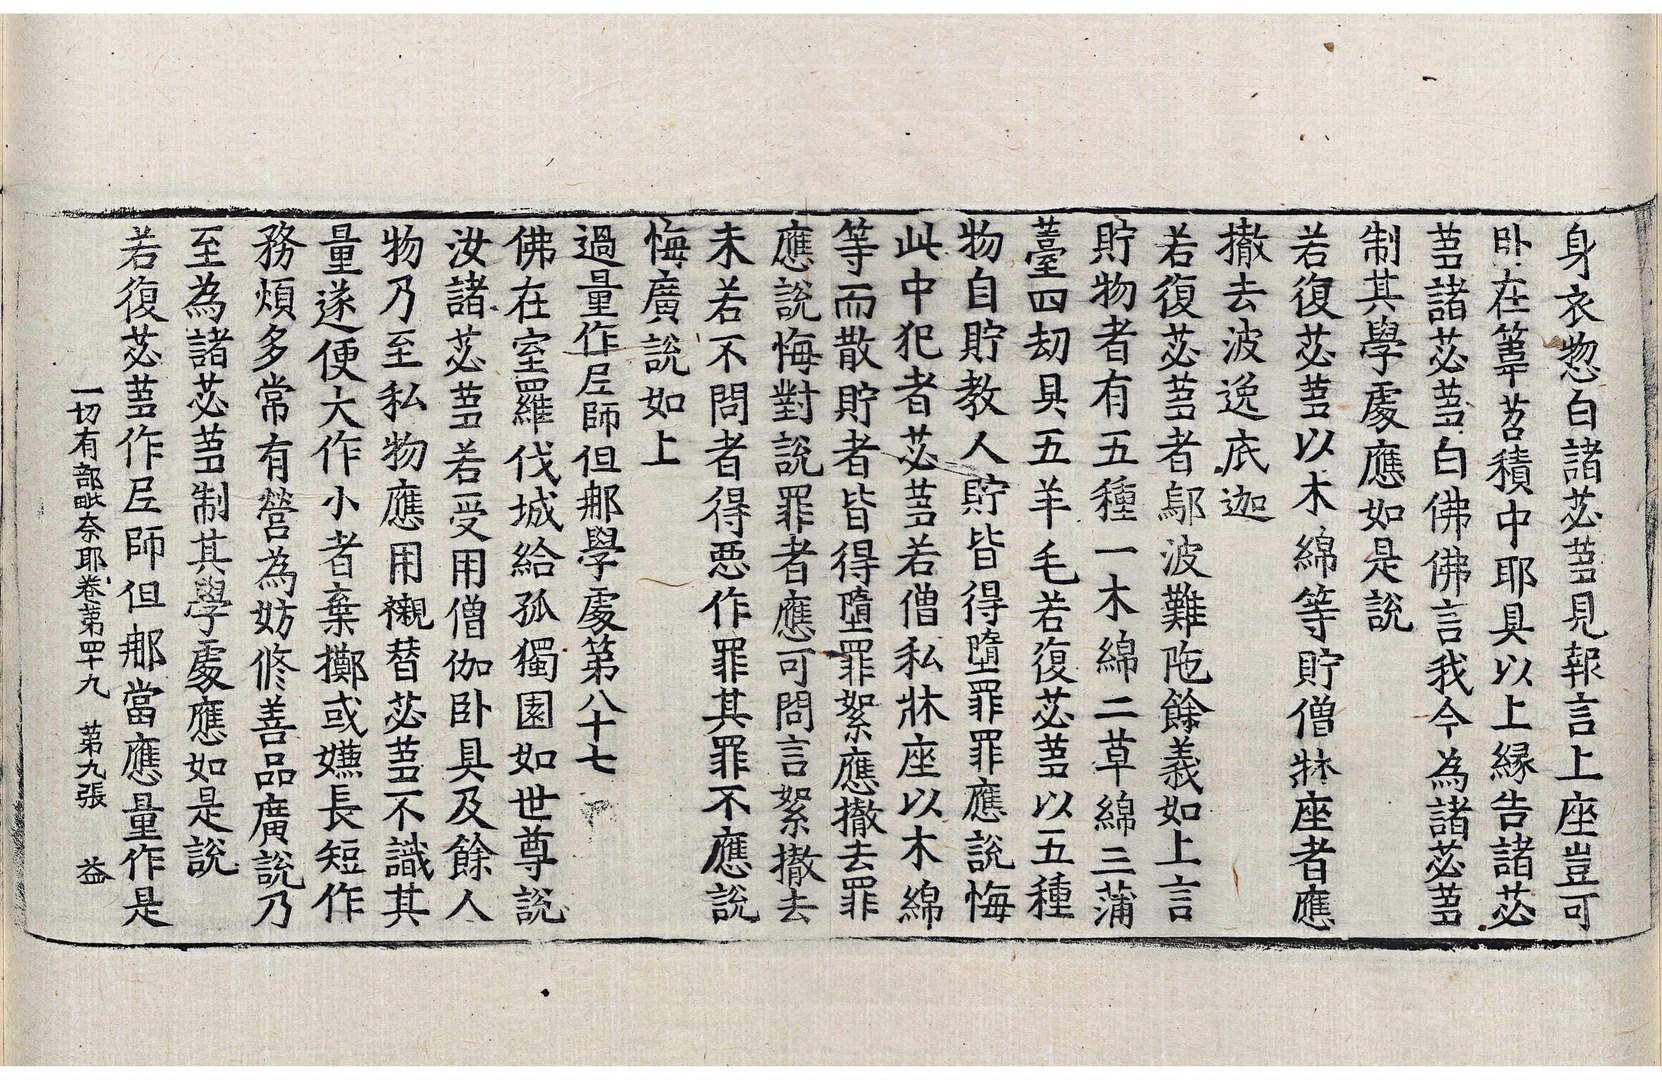 身衣惣白諸苾蒭見報言上座豈可
卧在葦苕積中耶具以上縁告諸苾
蒭諸苾蒭白佛佛言我今為諸苾蒭
制其學處應如是說
若復苾蒭以木綿等貯僧牀座者應
撤去波逸底迦
若復苾蒭者鄔波難陁餘義如上言
貯物者有五種一木綿二草綿三蒲
薹四刧具五羊毛若復苾蒭以五種
物自貯教人貯皆得墮罪罪應說悔
此中犯者苾蒭若僧私牀座以木綿
等而散貯者皆得墮罪絮應撤去罪
應說悔對說罪者應可問言絮撤去
未若不問者得惡作罪其罪不應說
悔廣說如上
過量作尼師但那學處第八十七
佛在室羅伐城給孤獨園如世尊說
汝諸苾蒭若受用僧伽卧具及餘人
物乃至私物應用襯替苾蒭不識其
量遂便大作小者棄擲或嫌長短作
務煩多常有營為妨修善品廣說乃
至為諸苾蒭制其學處應如是說
若復苾蒭作尼師但那當應量作是
一切有部毗奈耶卷第四十九 第九張 益